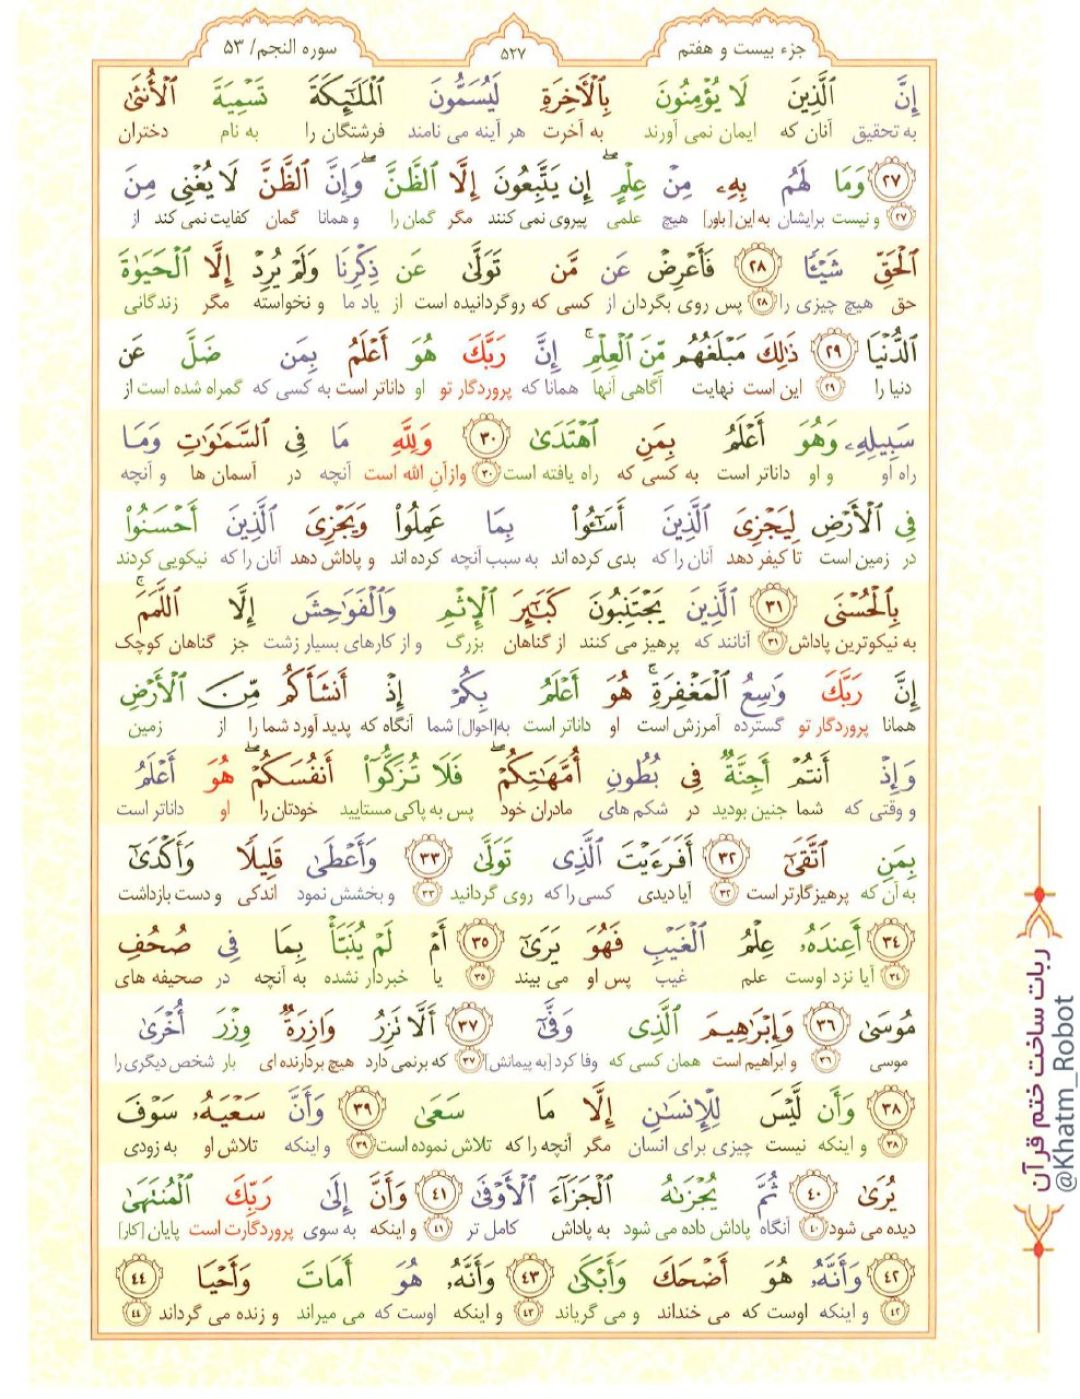 جزء بیست و هفتم
۵۲۷
سوره النجم/ ۵۳
إِنَّ ٱلَّذِينَ لَا يُؤْمِنُونَ بِٱلْأَخِرَةِ لَيُسَمُّونَ ٱلْمَلَـٰٓئِكَةَ تَسْمِيَةَ ٱلْأُنثَىٰ
به تحقیق آنان که ایمان نمی آورند به آخرت هر آینه می نامند فرشتگان را به نام دختران
﴿٢٧﴾ وَمَا لَهُم بِهِۦ مِنْ عِلْمٍ ۖ إِن يَتَّبِعُونَ إِلَّا ٱلظَّنَّ ۖ وَإِنَّ ٱلظَّنَّ لَا يُغْنِى مِنَ
﴿۲۷﴾ و نیست برایشان به این[باور] هیچ علمی پیروی نمی کنند مگر گمان را و همانا گمان کفایت نمی کند از
ٱلْحَقِّ شَيْـًٔا ﴿٢٨﴾ فَأَعْرِضْ عَن مَّن تَوَلَّىٰ عَن ذِكْرِنَا وَلَمْ يُرِدْ إِلَّا ٱلْحَيَوٰةَ
حق هیچ چیزی را ﴿۲۸﴾ پس روی بگردان از کسی که روگردانیده است از یاد ما و نخواسته مگر زندگانی
ٱلدُّنْيَا ﴿٢٩﴾ ذَٰلِكَ مَبْلَغُهُم مِّنَ ٱلْعِلْمِ ۚ إِنَّ رَبَّكَ هُوَ أَعْلَمُ بِمَن ضَلَّ عَن
دنیا را ﴿۲۹﴾ این است نهایت آگاهی آنها همانا که پروردگار تو او داناتر است به کسی که گمراه شده است از
سَبِيلِهِۦ وَهُوَ أَعْلَمُ بِمَنِ ٱهْتَدَىٰ ﴿٣٠﴾ وَلِلَّهِ مَا فِى ٱلسَّمَـٰوَٰتِ وَمَا
راه او و او داناتر است به کسی که راه یافته است ﴿۳۰﴾ وازآنِ الله است آنچه در آسمان ها و آنچه
فِى ٱلْأَرْضِ لِيَجْزِىَ ٱلَّذِينَ أَسَـٰٓـُٔوا۟ بِمَا عَمِلُوا۟ وَيَجْزِىَ ٱلَّذِينَ أَحْسَنُوا۟
در زمین است تا کیفر دهد آنان را که بدی کرده اند به سبب آنچه کرده اند و پاداش دهد آنان را که نیکویی کردند
بِٱلْحُسْنَى ﴿٣١﴾ ٱلَّذِينَ يَجْتَنِبُونَ كَبَـٰٓئِرَ ٱلْإِثْمِ وَٱلْفَوَٰحِشَ إِلَّا ٱللَّمَمَ ۚ
به نیکوترین پاداش ﴿۳۱﴾ آنانند که پرهیز می کنند از گناهان بزرگ و از کارهای بسیار زشت جز گناهان کوچک
إِنَّ رَبَّكَ وَٰسِعُ ٱلْمَغْفِرَةِ ۚ هُوَ أَعْلَمُ بِكُمْ إِذْ أَنشَأَكُم مِّنَ ٱلْأَرْضِ
همانا پروردگار تو گسترده آمرزش است او داناتر است به[احوال] شما آنگاه که پدید آورد شما را از زمین
وَإِذْ أَنتُمْ أَجِنَّةٌ فِى بُطُونِ أُمَّهَـٰتِكُمْ ۖ فَلَا تُزَكُّوٓا۟ أَنفُسَكُمْ ۖ هُوَ أَعْلَمُ
و وقتی که شما جنین بودید در شکم های مادران خود پس به پاکی مستایید خودتان را او داناتر است
بِمَنِ ٱتَّقَىٰٓ ﴿٣٢﴾ أَفَرَءَيْتَ ٱلَّذِى تَوَلَّىٰ ﴿٣٣﴾ وَأَعْطَىٰ قَلِيلًا وَأَكْدَىٰٓ
به آن که پرهیزگارتر است ﴿۳۲﴾ آیا دیدی کسی را که روی گردانید ﴿۳۳﴾ و بخشش نمود اندکی و دست بازداشت
﴿٣٤﴾ أَعِندَهُۥ عِلْمُ ٱلْغَيْبِ فَهُوَ يَرَىٰٓ ﴿٣٥﴾ أَمْ لَمْ يُنَبَّأْ بِمَا فِى صُحُفِ
﴿۳۴﴾ آیا نزد اوست علم غیب پس او می بیند ﴿۳۵﴾ یا خبردار نشده به آنچه در صحیفه های
مُوسَىٰ ﴿٣٦﴾ وَإِبْرَٰهِيمَ ٱلَّذِى وَفَّىٰٓ ﴿٣٧﴾ أَلَّا تَزِرُ وَازِرَةٌ وِزْرَ أُخْرَىٰ
موسی ﴿۳۶﴾ و ابراهیم است همان کسی که وفا کرد [به پیمانش] ﴿۳۷﴾ که برنمی دارد هیچ بردارنده ای بار شخص دیگری را
﴿٣٨﴾ وَأَن لَّيْسَ لِلْإِنسَـٰنِ إِلَّا مَا سَعَىٰ ﴿٣٩﴾ وَأَنَّ سَعْيَهُۥ سَوْفَ
﴿۳۸﴾ و اینکه نیست چیزی برای انسان مگر آنچه را که تلاش نموده است ﴿۳۹﴾ و اینکه تلاش او به زودی
يُرَىٰ ﴿٤٠﴾ ثُمَّ يُجْزَىٰهُ ٱلْجَزَآءَ ٱلْأَوْفَىٰ ﴿٤١﴾ وَأَنَّ إِلَىٰ رَبِّكَ ٱلْمُنتَهَىٰ
دیده می شود ﴿۴۰﴾ آنگاه پاداش داده می شود به پاداش کامل تر ﴿۴۱﴾ و اینکه به سوی پروردگارت است پایان [کار]
﴿٤٢﴾ وَأَنَّهُۥ هُوَ أَضْحَكَ وَأَبْكَىٰ ﴿٤٣﴾ وَأَنَّهُۥ هُوَ أَمَاتَ وَأَحْيَا ﴿٤٤﴾
﴿۴۲﴾ و اینکه اوست که می خنداند و می گریاند ﴿۴۳﴾ و اینکه اوست که می میراند و زنده می گرداند ﴿۴۴﴾
ربات ساخت ختم قرآن
@Khatm_Robot